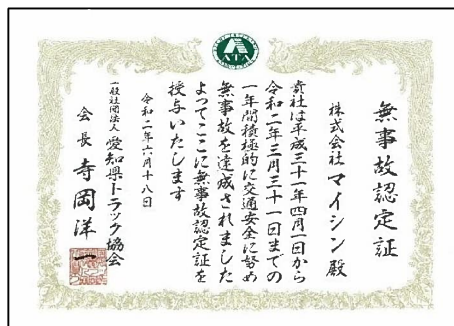 ATA
無事故認定証
株式会社マイシン殿
貴社は平成三十一年四月一日から
令和二年三月三十一日までの
一年間積極的に交通安全に努め
無事故を達成されました
よってここに無事故認定証を
授与いたします
令和二年六月十八日
一般社団法人愛知県トラック協会
会長寺岡洋一